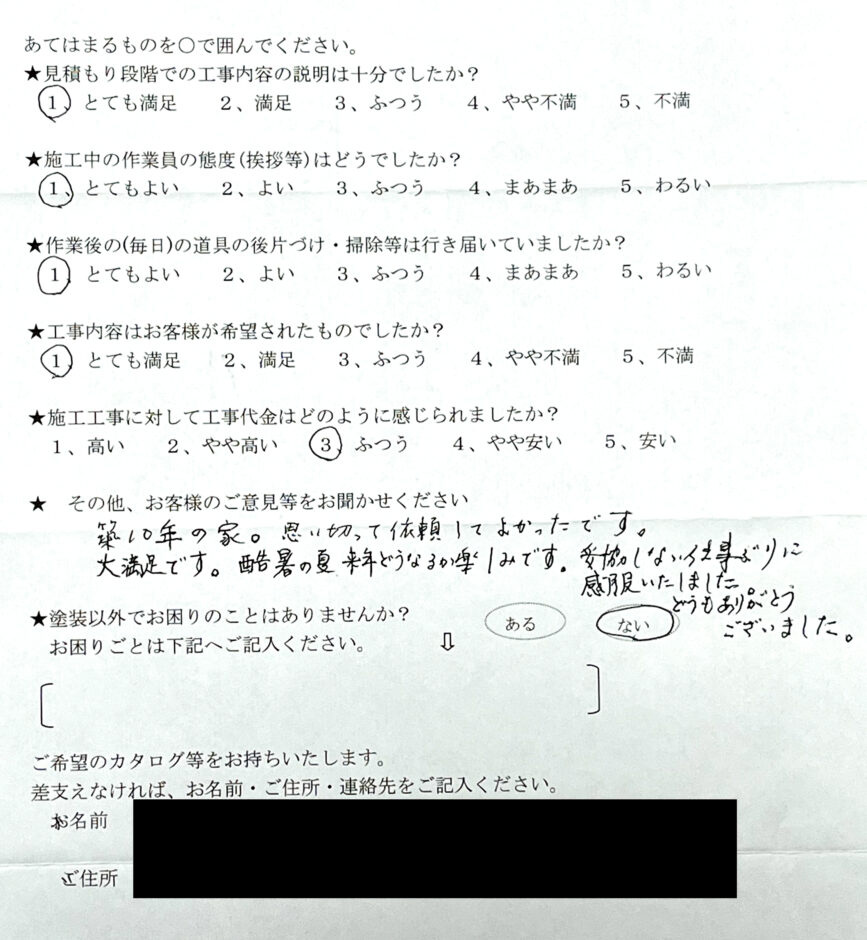 あてはまるものを○で囲んでください。
★見積もり段階での工事内容の説明は十分でしたか？
1、とても満足　2、満足　3、ふつう　4、やや不満　5、不満
★施工中の作業員の態度(挨拶等)はどうでしたか？
1、とてもよい　2、よい　3、ふつう　4、まあまあ　5、わるい
★作業後の(毎日)の道具の後片づけ・掃除等は行き届いていましたか？
1、とてもよい　2、よい　3、ふつう　4、まあまあ　5、わるい
★工事内容はお客様が希望されたものでしたか？
1、とても満足　2、満足　3、ふつう　4、やや不満　5、不満
★施工工事に対して工事代金はどのように感じられましたか？
1、高い　2、やや高い　3、ふつう　4、やや安い　5、安い
★　その他、お客様のご意見等をお聞かせください
築10年の家。思い切って依頼してよかったです。
大満足です。酷暑の夏 来年どうなるか楽しみです。妥協しない仕事ぶりに
感服いたしました
どうもありがとう
ございました。
★塗装以外でお困りのことはありませんか？　ある　ない
お困りごとは下記へご記入ください。　⇩
ご希望のカタログ等をお持ちいたします。
差支えなければ、お名前・ご住所・連絡先をご記入ください。
お名前
ご住所